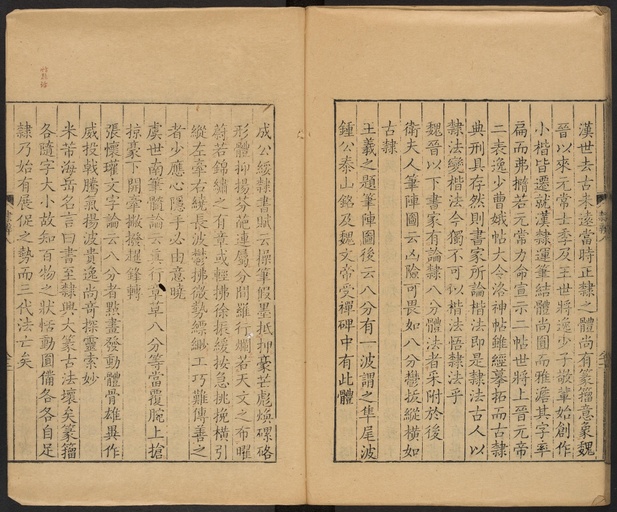 漢世去古未遠當時正隸之體尚有篆籀意象魏
晉以來元常士季及王世將逸少子敬輩始創作
小楷皆遷就漢隸運筆結體尚圓而雅澹其字率
扁而弗橢若元常力命宣示二帖世將上晉元帝
二表逸少曹娥帖大令洛神帖雖經摹拓而古隸
典刑具存然則書家所論楷法即是隸法古人以
隸法變楷法今獨不可以楷法悟隸法乎
魏晉以下書家有論隸八分體法者采附於後
衛夫人筆陣圖云凶險可畏如八分鬱拔縱橫如
古隸
王羲之題筆陣圖後云八分有一波謂之隼尾波
鍾公泰山銘及魏文帝受禪碑中有此體
成公綏隸書賦云操筆假墨抵押毫芒彪煥磥硌
形體抑揚芬葩連屬分間羅行爛若天文之布曜
蔚若錦繡之有章或輕拂徐振緩按急挑挽橫引
縱左牽右繞長波鬱拂微勢縹緲工巧難傳善之
者少應心隱手必由意曉
虞世南筆髓論云真行草章八分等當覆腕上搶
掠豪下開牽撇撥趯鋒轉
張懷瓘文字論云八分者點畫發動體骨雄異作
威投戟騰氣揚波貴逸尚奇探靈索妙
米芾海岳名言曰書至隸興大篆古法壞矣篆籀
各隨字大小故知百物之狀恬動圓備各各自足
隸乃始有展促之勢而三代法亡矣